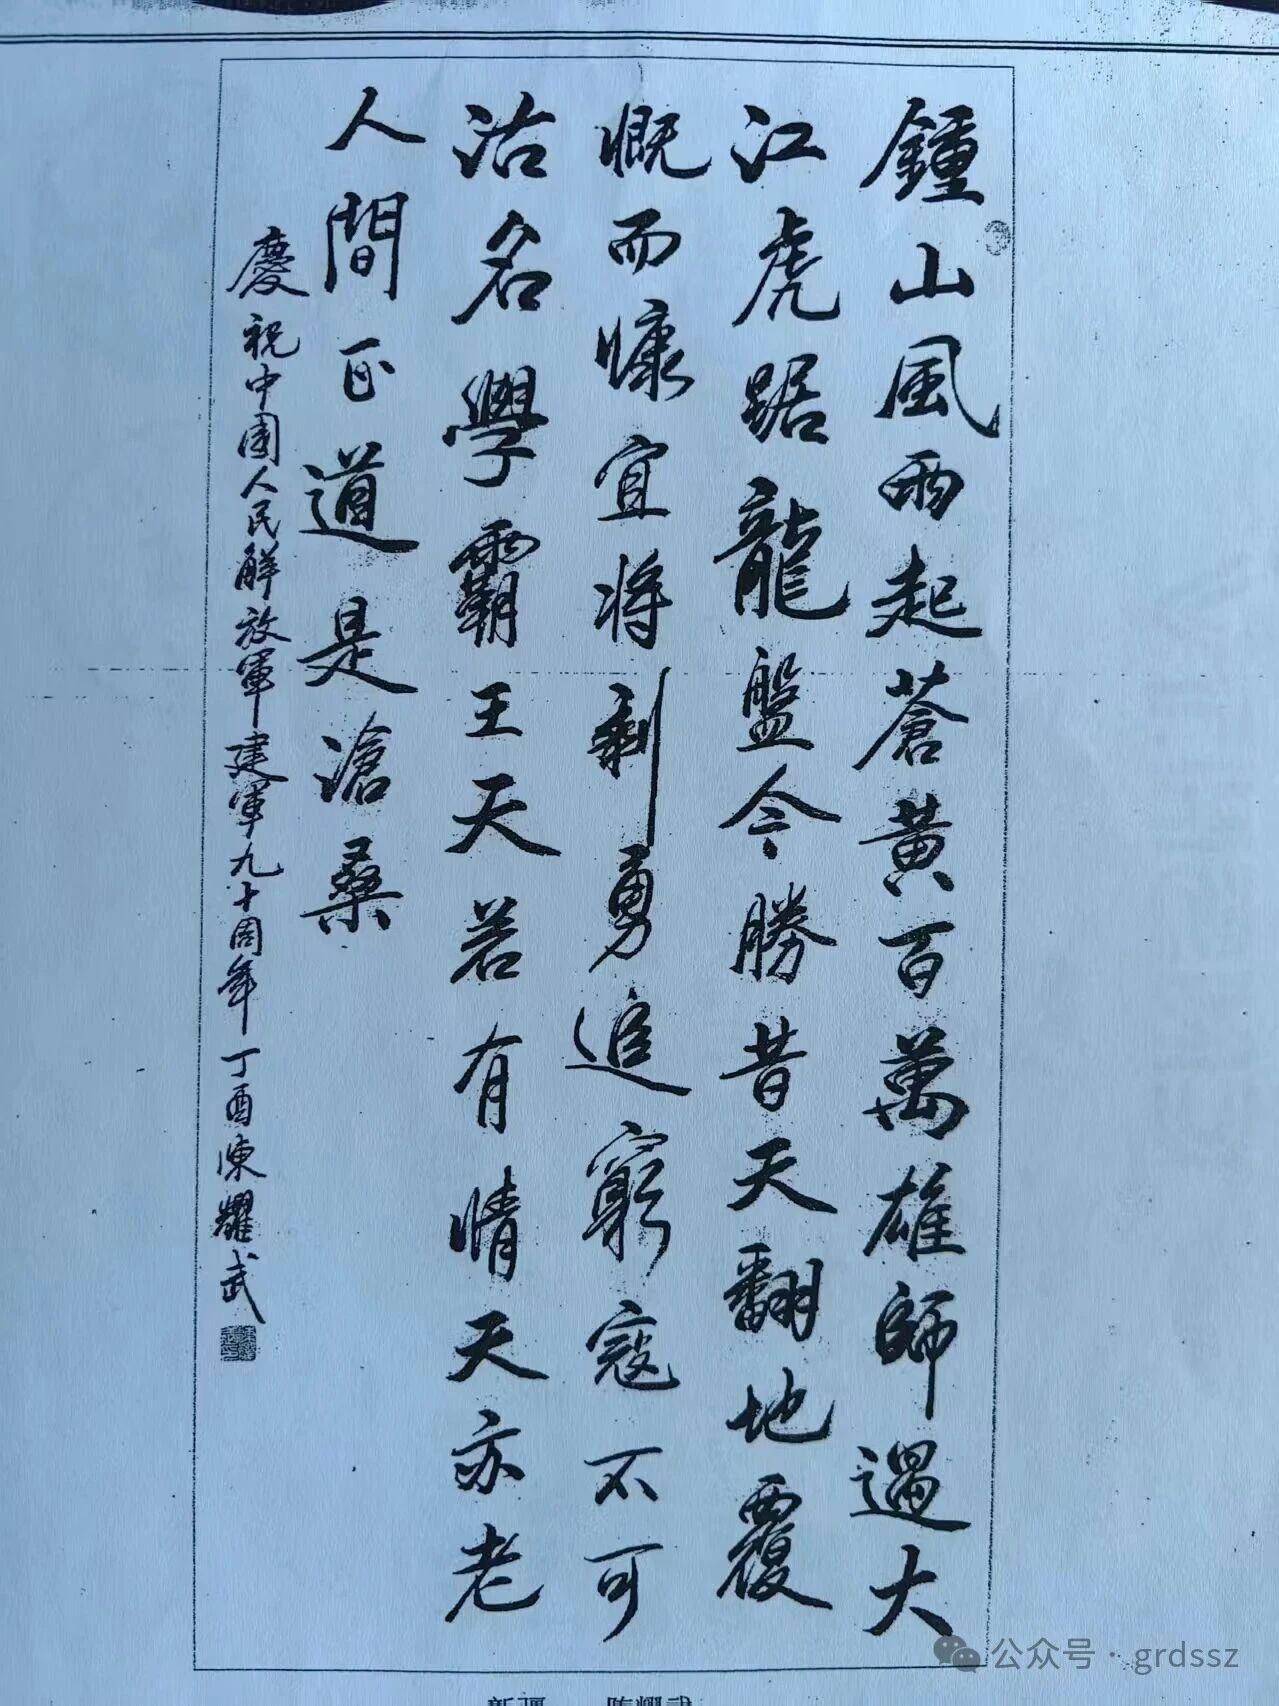 鍾山風雨起蒼黃百萬雄師過大
江虎踞龍盤今勝昔天翻地覆
慨而慷宜将剩勇追窮寇不可
沽名學霸王天若有情天亦老
人間正道是滄桑
慶祝中國人民解放軍建軍九十周年 丁酉陳耀武
新疆 陈耀武
公众号 · grdssz